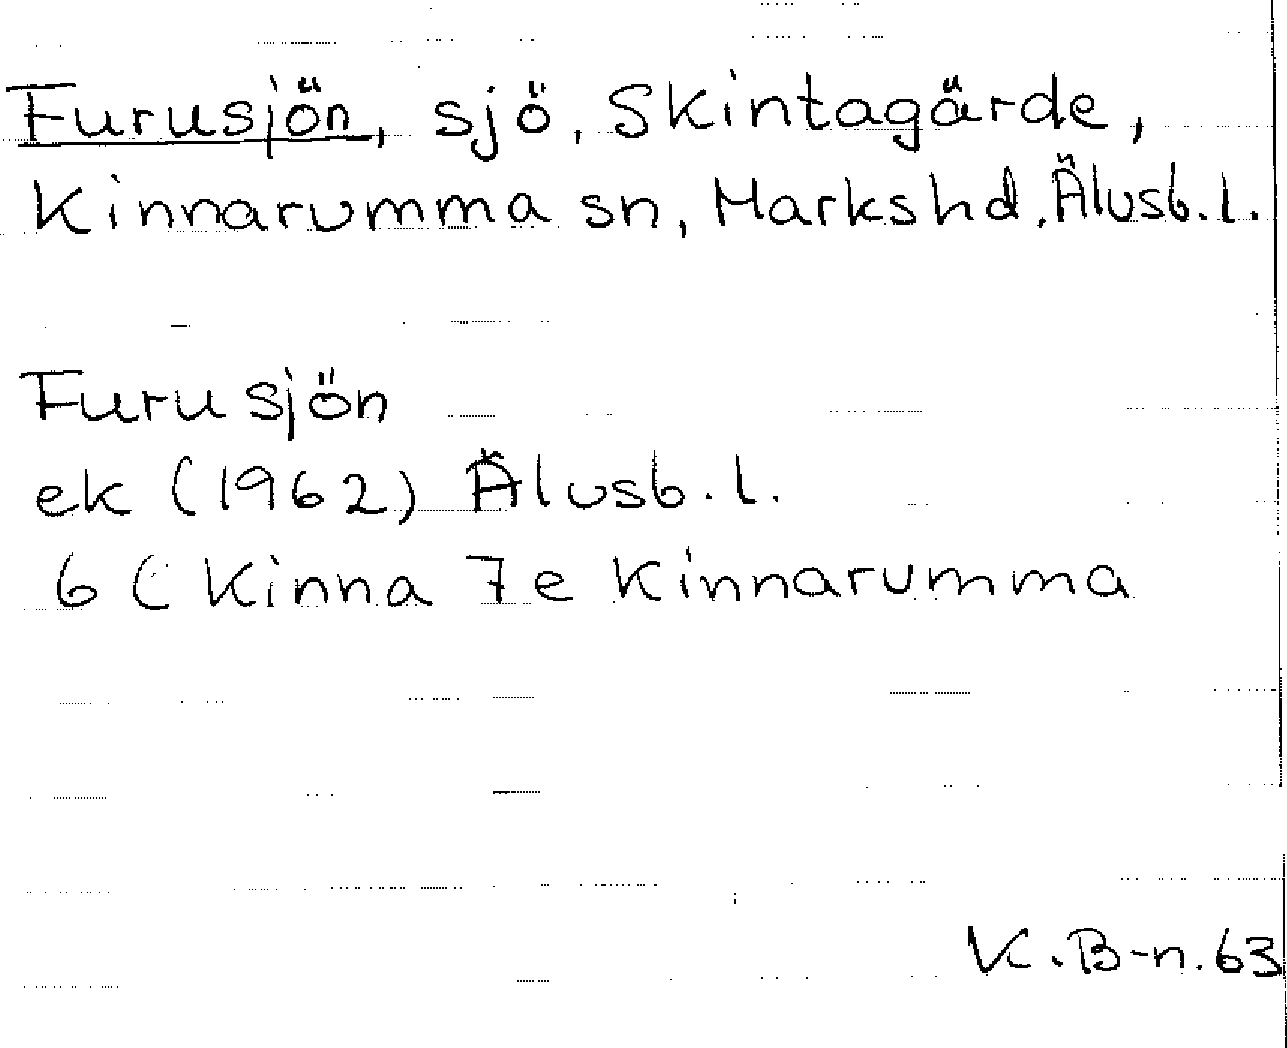 Furusjön, sjö, Skintagärde,
Kinnarumma sn, Markshd, Älvsb. l.
Furusjön
ek (1962) Älvsb. l.
6 C Kinna 7e Kinnarumma
K. B-n. 63